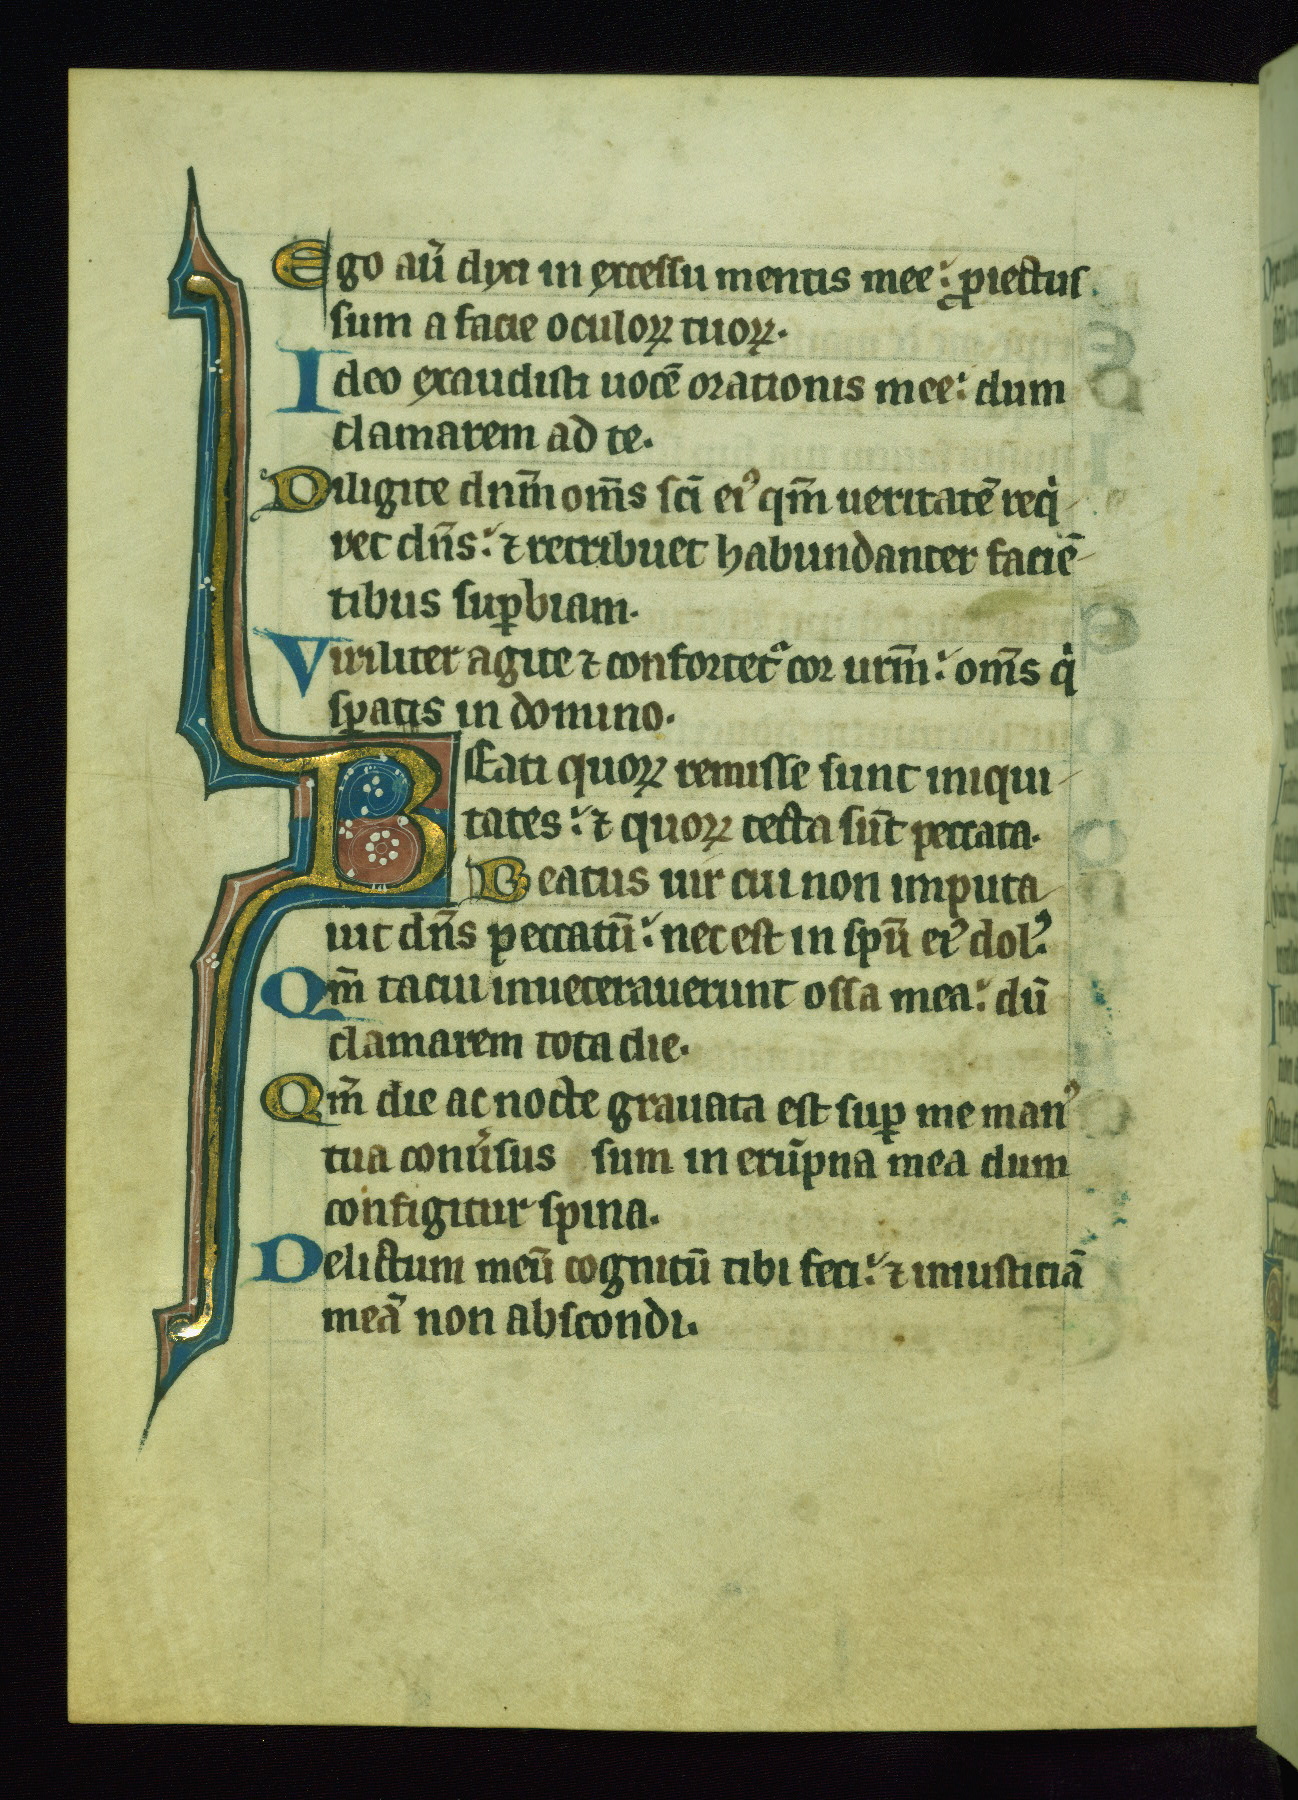 Ego aū dyxi in excessu mentis mee: ꝓiectus
sum a facie oculoꝝ tuoꝝ.
Ideo exaudisti uocē orationis mee: dum
clamarem ad te.
Diligite dn̄m om̄s sc̄i eiꝰ qm̄ ueritatē reqͥ
ret dn̄s: ⁊ retribuet habundanter faciē
tibus suꝑbiam.
Viriliter agite ⁊ confortetᷣ cor ur̄m: om̄s qͥ
sꝑatis in domino.
BEati quoꝝ remisse sunt iniqui
tates: ⁊ quoꝝ tecta sūt peccata.
Beatus uir cui non imputa
uit dn̄s peccatū: nec est in spū eiꝰ dolꝰ.
Qm̄ tacui inueterauerunt ossa mea: dū
clamarem tota die.
Qm̄ die ac nocte grauata est suꝑ me manꝰ
tua conũsus sum in erūpna mea dum
configitur spina.
Delictum meū cognitū tibi feci: ⁊ iniusticiā
meā non abscondi.